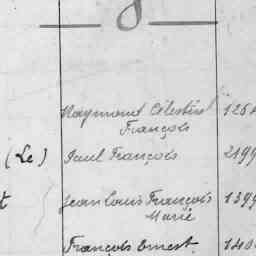 Raymond Célestin 1254
François
(Le) Paul François 2199
t Jean Louis François 1399
Marie
François Ernest. 140